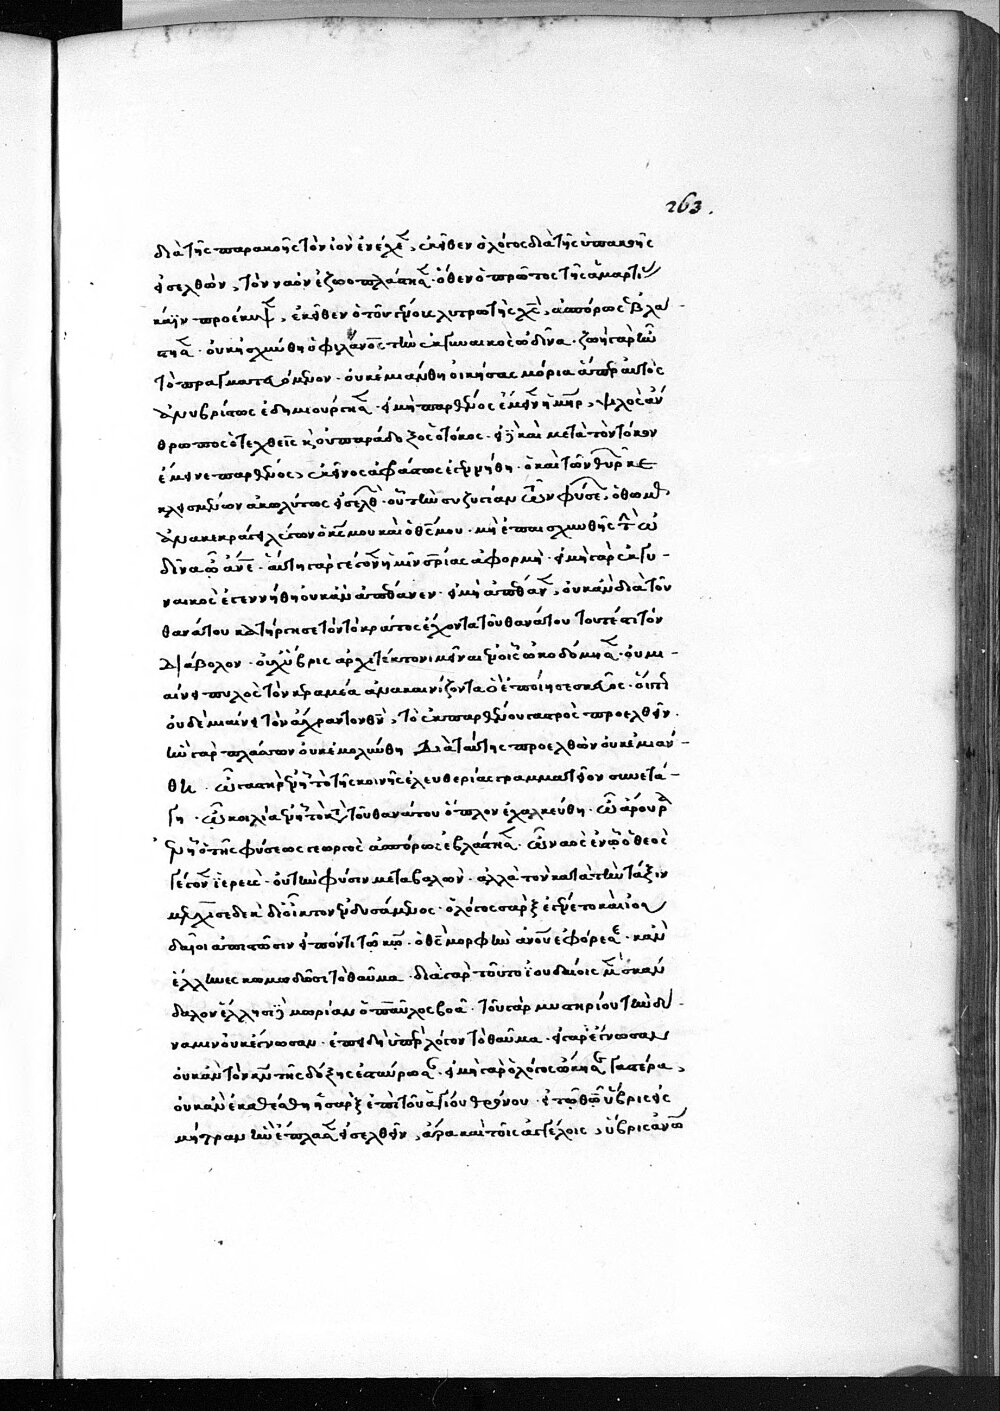 263.
διὰ τῆς παρακοῆς τὸν ἰὸν ἐνέχεε, ἐκεῖθεν ὁ λόγος διὰ τῆς ὑπακοῆς
εἰσελθὼν, τὸν ναὸν ἐζωοπλάστησε. ὅθεν ὁ πρῶτος τῆς ἁμαρτίας
κάϊν προέκυψε, ἐκεῖθεν ὁ τοῦ γένους λυτρωτὴς χς, ἀσπόρως ἐβλά
στησε. οὐκ ἠσχύνθη ὁ φιλάνος τὴν ἐκ γυναικὸς ὠδῖνα. ζωὴ γὰρ ἦν
τὸ πραγματευόμενον. οὐκ ἐμιάνθη οἰκήσας μόρια ἅπερ αὐτὸς
ἀνυβρίστως ἐδημιούργησε. εἰ μὴ παρθένος ἔμεινεν ἡ μηρ, ψιλὸς ἄν
θρωπος ὁ τεχθεὶς καὶ οὐ παράδοξος ὁ τόκος. εἰ δὲ καὶ μετὰ τὸν τόκον
ἔμεινε παρθένος, ἐκεῖνος ἀφράστως ἐγεννήθη. ὁ καὶ τῶν θυρῶν κε
κλεισμένων ἀκωλύτως εἰσελθὼν. οὗ τὴν συζυγίαν τῶν φύσεων, ὁ θωμᾶς
ἀνακεκράγει λέγων ὁ κς μου καὶ ὁ θς μου. μὴ ἐπαισχυνθῇς τὴν ὠ
δῖνα ὦ ἄνε. αὕτη γὰρ γέγονεν ἡμῖν σρίας ἀφορμὴ. εἰ μὴ γὰρ ἐκ γυ-
ναικὸς ἐγεννήθη οὐκ ἂν ἀπέθανεν. εἰ μὴ ἀπέθανεν, οὐκ ἂν διὰ τοῦ
θανάτου κατήργησε τὸν τὸ κράτος ἔχοντα τοῦ θανάτου τουτέστι τὸν
διάβολον. οὐχ ὕβρις ἀρχιτέκτονι μεῖναι ἐν οἷς ὠκοδόμησε. οὐ μι-
αίνει πηλὸς τὸν κεραμέα ἀνακαινίζοντα ὃ ἐποίησε σκεῦος. οὕτως
οὐδὲ μιαίνει τὸν ἄχραντον θν, τὸ ἐκ παρθένου γαστρὸς προελθεῖν.
ἣν γὰρ πλάσσων οὐκ ἐμολύνθη, διὰ ταύτης προελθὼν οὐκ ἐμιάν-
θη. ὢ γαστὴρ ἐν ᾗ τὸ τῆς κοινῆς ἐλευθερίας γραμματεῖον συνετά-
γη. ὢ κοιλία ἐν ᾗ τὸ κατὰ τοῦ θανάτου ὅπλον ἐχαλκεύθη. ὢ ἄρουρα
ἐν ᾗ ὁ τῆς φύσεως γεωργὸς ἀσπόρως ἐβλάστησε. ὢ ναὸς ἐν ᾧ ὁ θεὸς
γέγονεν ἱερεὺς. οὐ τὴν φύσιν μεταβαλὼν. ἀλλὰ τὸν κατὰ τὴν τάξιν
μελχισεδὲκ δι᾽ οἶκτον ἐνδυσάμενος. ὁ λόγος σὰρξ ἐγένετο κἂν ἰου
δαῖοι ἀπιστῶσιν εἰπόντι τῶ κω. ὁ θς μορφὴν ἀνου ἐφόρεσε. κἂν
ἕλληνες κωμωδῶσι τὸ θαῦμα. διὰ γὰρ τοῦτο ἰουδαίοις μὲν σκάν
δαλον ἕλλησι δὲ μωρίαν ὁ παῦλος βοᾶ. τοῦ γὰρ μυστηρίου τὴν δύ-
ναμιν οὐκ ἔγνωσαν. ἐπειδὴ ὑπὲρ λόγον τὸ θαῦμα. εἰ γὰρ ἔγνωσαν
οὐκ ἂν τὸν κν τῆς δόξης ἐσταύρωσαν. εἰ μὴ γὰρ ὁ λόγος ὤκησε γαστέρα,
οὐκ ἂν ἐκαθέσθη ἡ σὰρξ ἐπὶ τοῦ ἁγίου θρόνου. εἰ τῶ θω ὕβρις εἰς
μήτραν ἣν ἔπλασεν εἰσελθεῖν, ἄρα καὶ τοῖς ἀγγέλοις, ὕβρις ἀνω